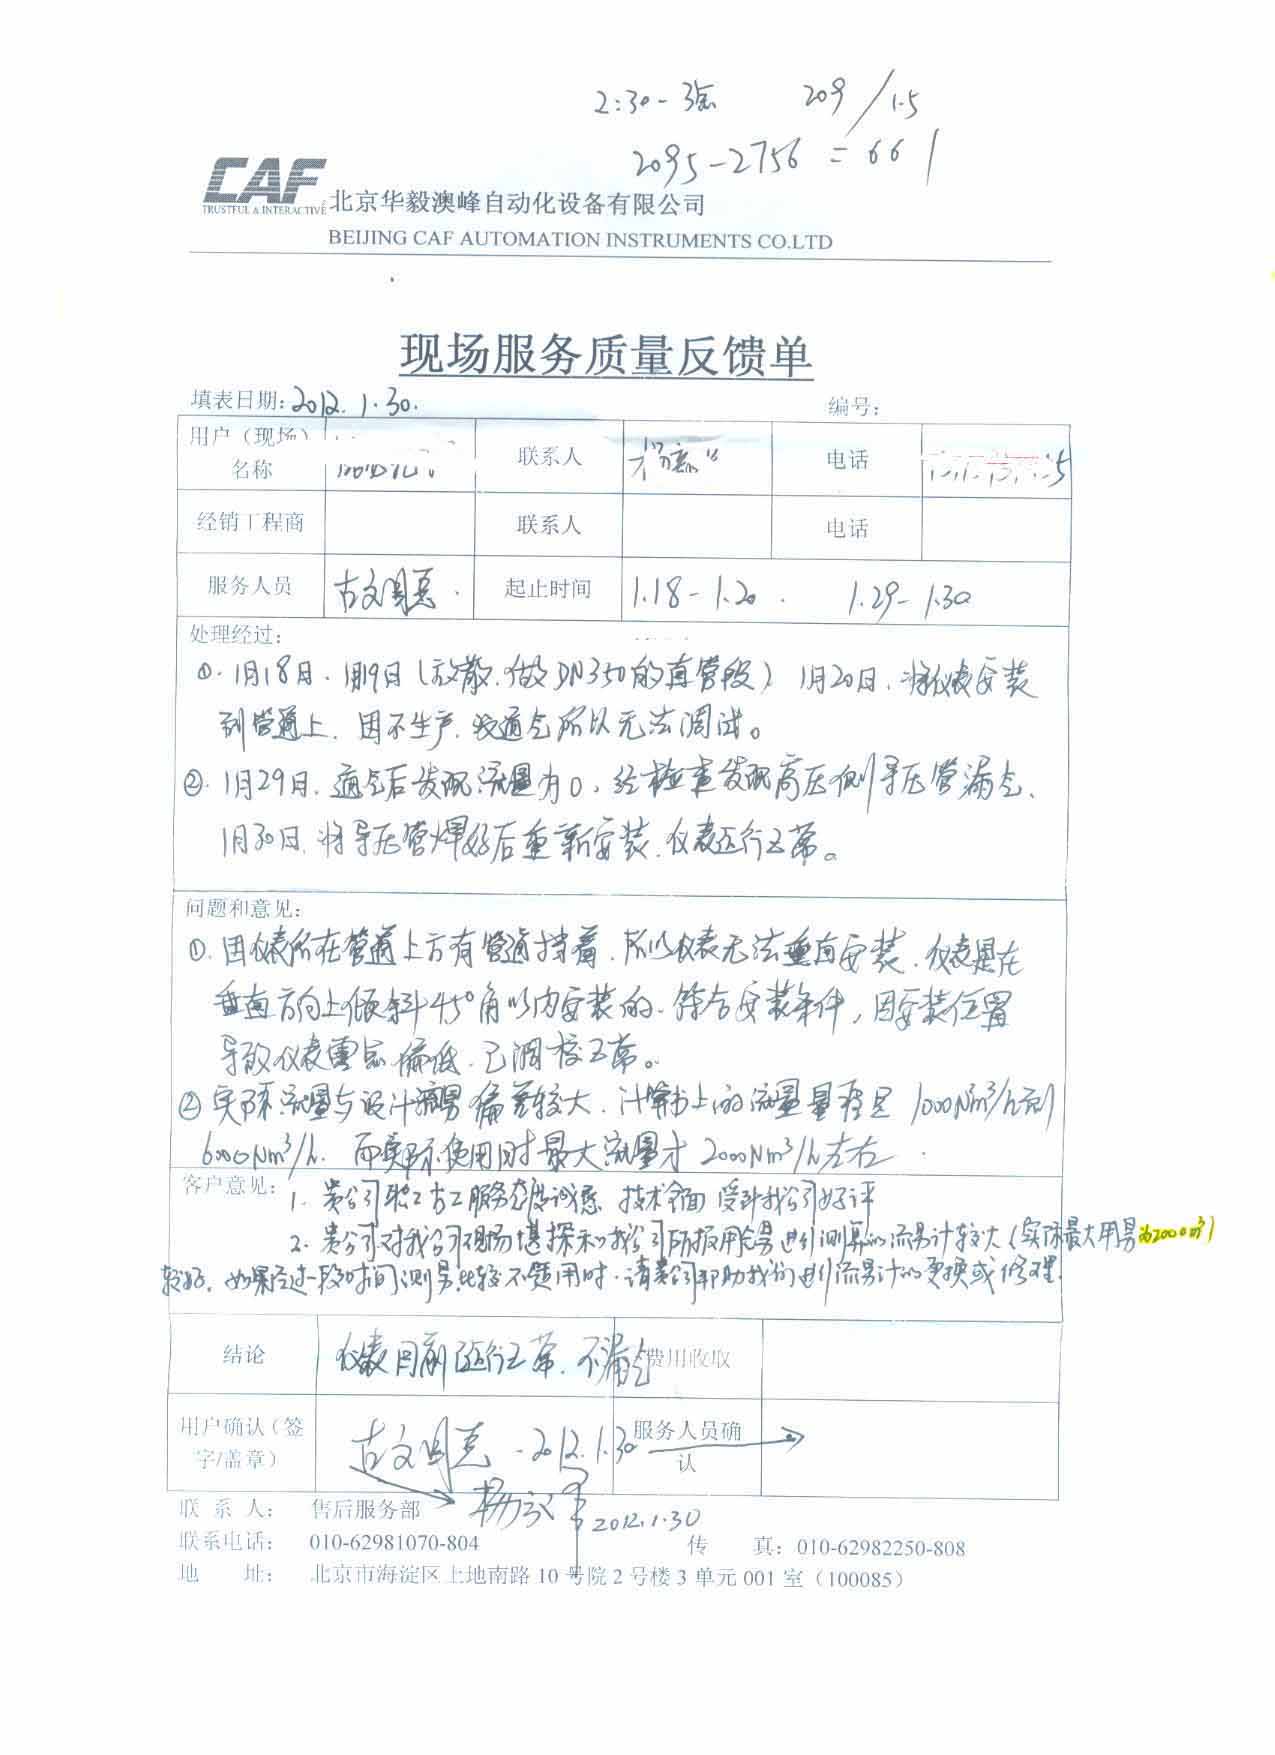 2:30-3点 209/1.5
2095-2756=661
CAF
TRUSTFUL & INTERACTIVE 北京华毅澳峰自动化设备有限公司
BEIJING CAF AUTOMATION INSTRUMENTS CO.LTD
现场服务质量反馈单
填表日期: 2012.1.30. 编号:
用户（现场）名称 联系人 电话
经销工程商 联系人 电话
服务人员 起止时间 1.18-1.20. 1.29-1.30
处理经过:
①.1月18日.1月19日(放散.做DN350的直管段) 1月20日.将仪表安装
到管道上.因不生产.没通气所以无法调试。
②.1月29日.通气后发现流量为0,经检查发现高压侧导压管漏气、
1月30日.将导压管焊好后重新安装.仪表运行正常。
问题和意见:
①.因仪表所在管道上方有管道挡着.所以仪表无法垂直安装.仪表是在
垂直方向上倾斜45°角以内安装的.符合安装条件,因安装位置
导致仪表零点偏低.已调校正常。
②实际流量与设计流量偏差较大.计算书上的流量量程是1000Nm³/h到
6000Nm³/h.而实际使用时最大流量才2000Nm³/h左右.
客户意见:
1.贵公司职工古工服务态度诚恳 技术全面 受到我公司好评
2.贵公司对我公司现场堪探和我公司所报用气量进行测算的流量计较大(实际最大用量为2000m³)
较好.如果经过一段时间测量比较不适用时.请贵公司帮助我们进行流量计的更换或修理.
结论 仪表目前运行正常.不漏气 费用收取
用户确认（签字/盖章） 2012.1.30 服务人员确认
2012.1.30
联 系 人: 售后服务部
联系电话: 010-62981070-804 传 真: 010-62982250-808
地 址: 北京市海淀区上地南路 10 号院 2 号楼 3 单元 001 室（100085）